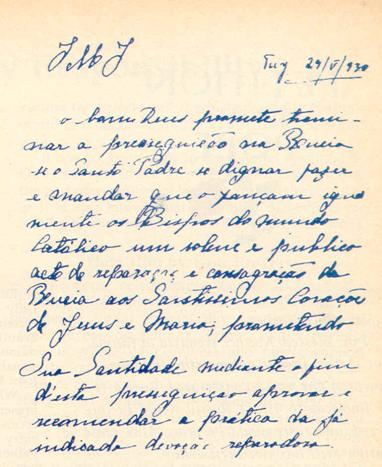 J M J
Tuy 29/V/930
O bom Deus promete termi-
nar a perseguição na Rucia
se o Santo Padre se dignar fazer
e mandar que o façam igual
mente os Bispos do mundo
Católico um solene e publico
acto de reparação e consagração da
Rucia aos Santissimos Corações
de Jesus e Maria; prometendo
Sua Santidade mediante o fim
d'esta perseguição aprovar e
recomendar a prática da já
indicada devoção reparadora.